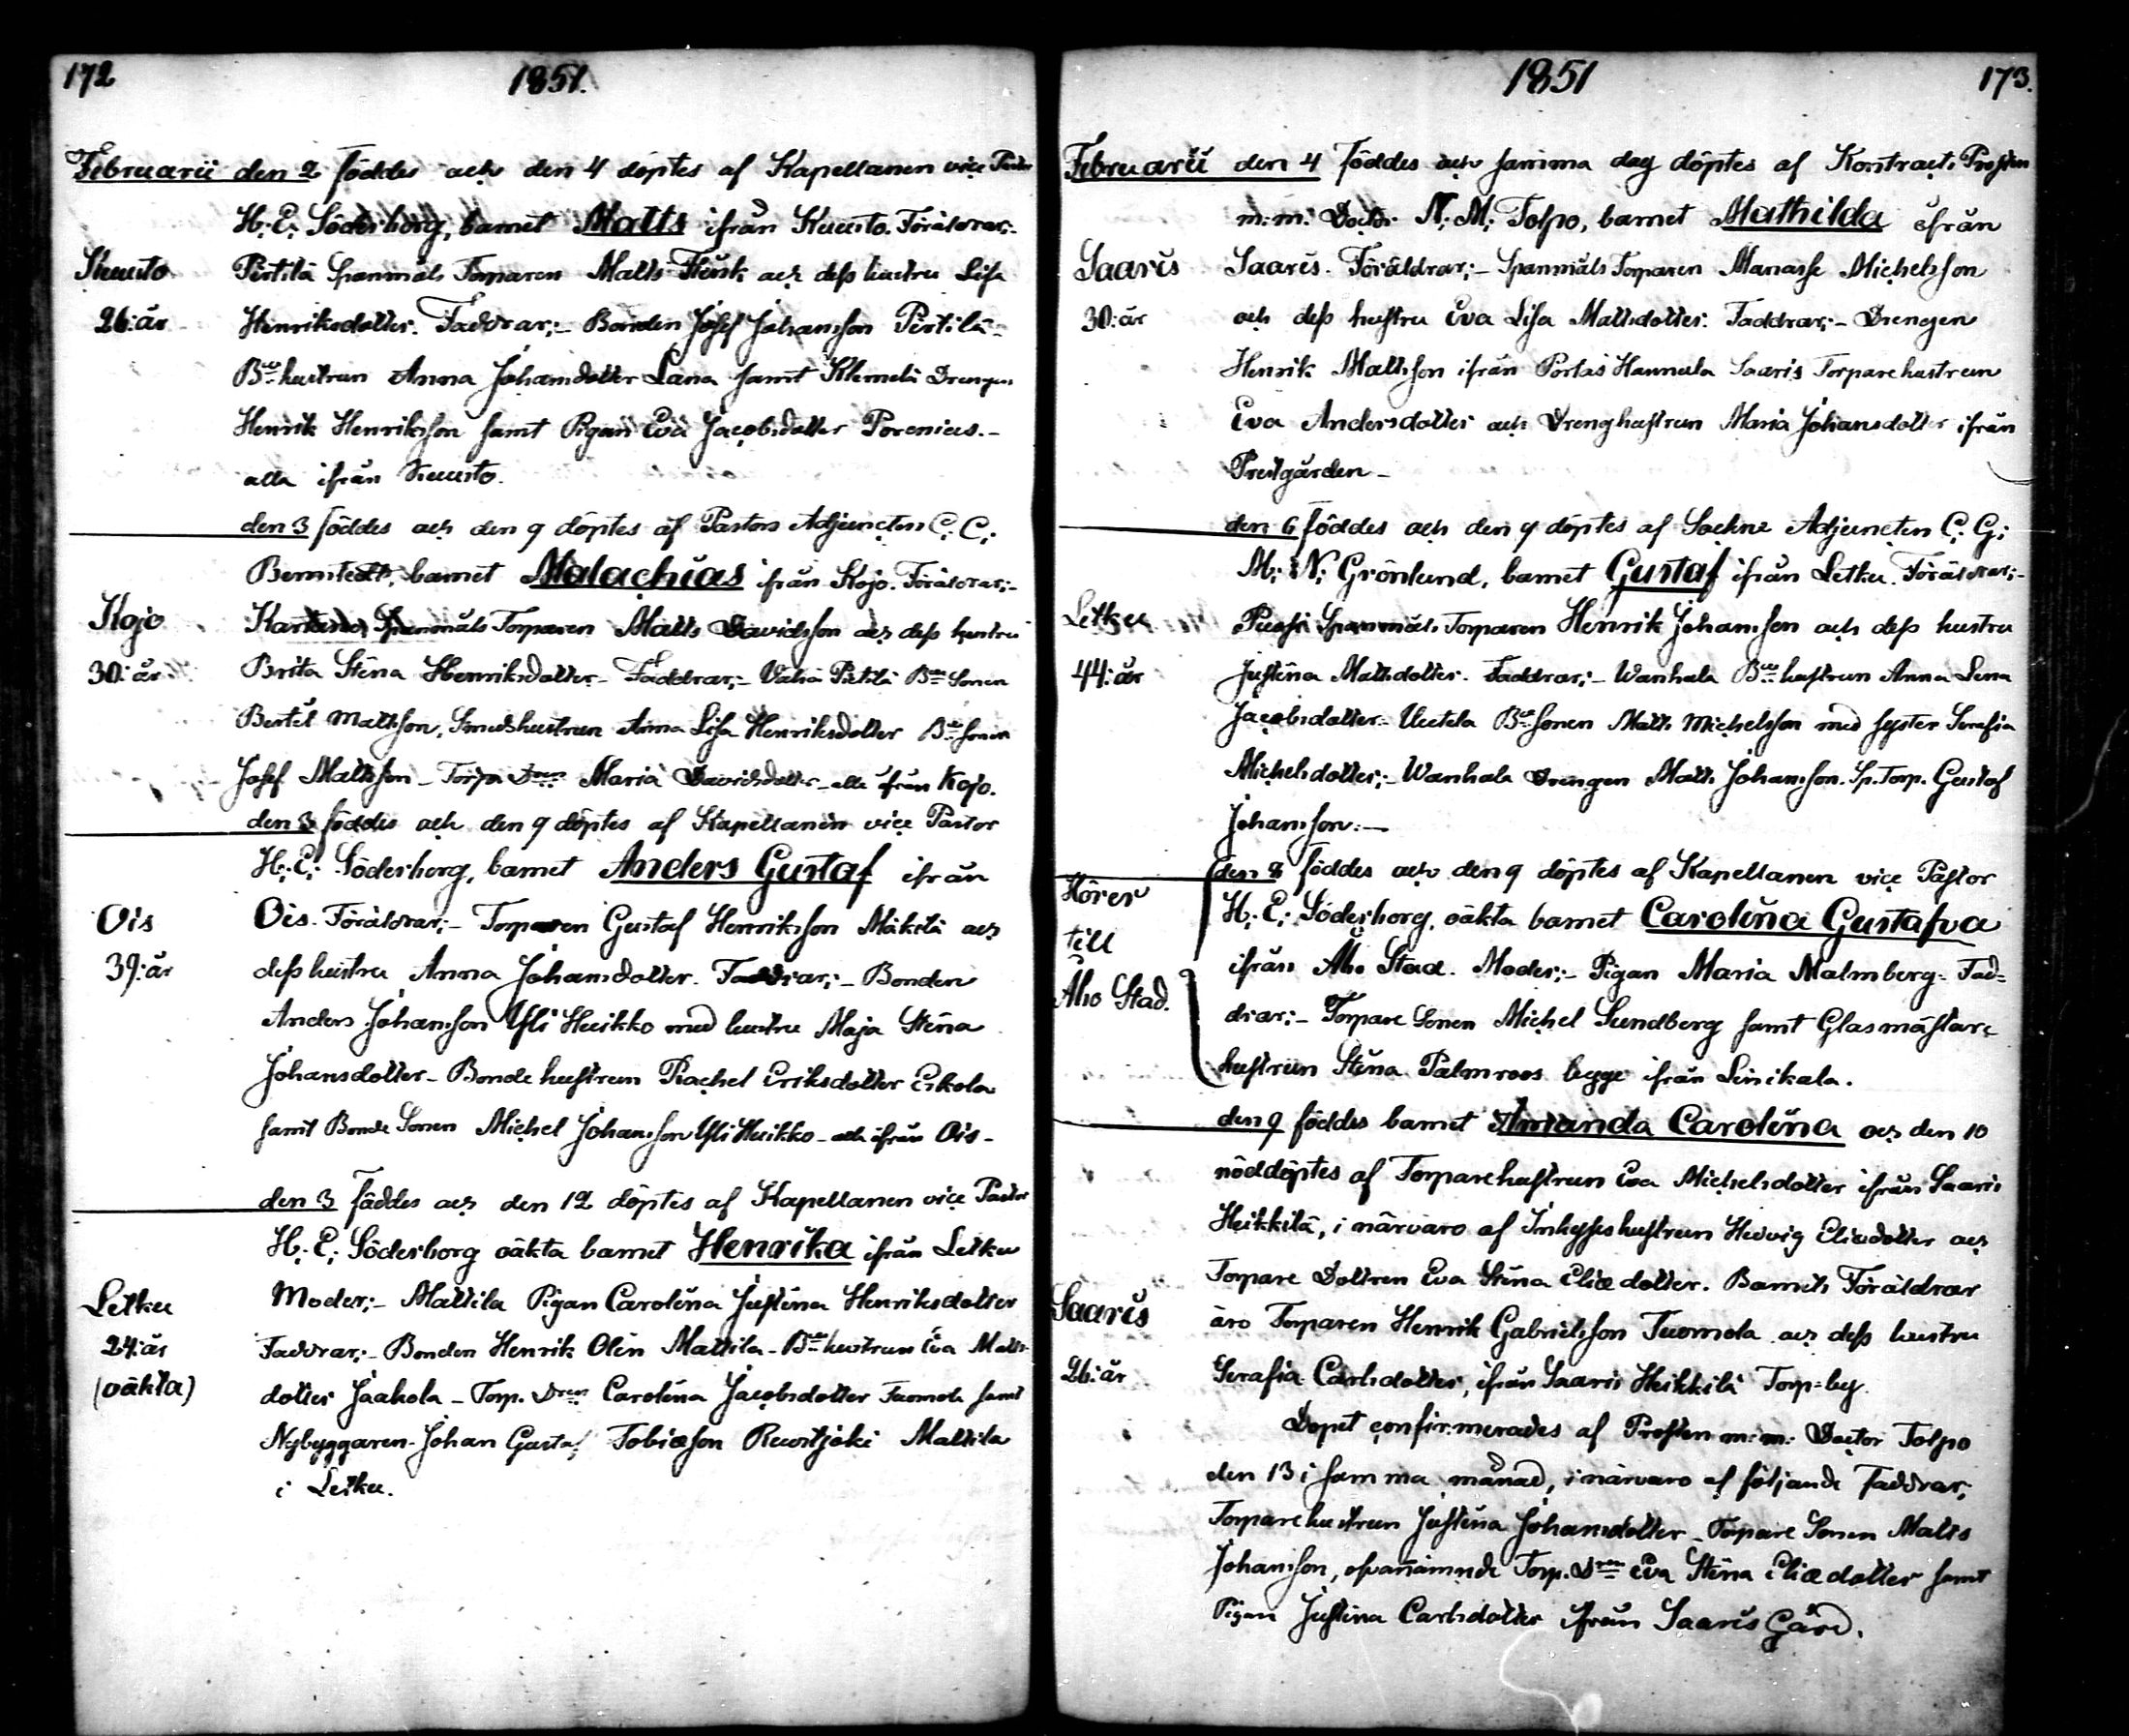 172
1851.
Februarii den 2 föddes och den 4 döptes af Kapellanen vice Pastor
H. E. Söderborg, barnet Matts ifrån Kuusto. Föräldrar;-
Kuusto Pertilä Spanmåls Torparen Matts Flinsk och dess hustru Lisa
26: år Henriksdotter. Faddrar;- Bonden Josef Johansson Pertilä-
Bde hustrun Anna Johansdotter Lana samt Klemelä Drengen
Henrik Henriksson samt Pigan Eva Jacobsdotter Porenius.-
alla ifrån Kuusto.
den 3 föddes och den 9 döptes af Pastors Adjuncten C. C.
barnet Malachias ifrån Kojo. Föräldrar;-
Kojo Spanmåls Torparen Matts Davidsson och dess hustru
30: år Brita Stina Henriksdotter- Faddrar;- Pietilä Bde Sonen
Bertil Mattsson, Smedshustrun Anna Lisa Henriksdotter Bde Sonen
Josef Mattsson- Torpa Dren Maria Davidsdotter- alla ifrån Kojo.
den 3 föddes och den 9 döptes af Kapellanen vice Pastor
H. E. Söderborg, barnet Anders Gustaf ifrån
Ois Ois. Föräldrar;- Torparen Gustaf Henriksson Mäkilä och
39: år dess hustru Anna Johansdotter. Faddrar;- Bonden
Anders Johansson Yli Huikko med hustru Maja Stina
Johansdotter- Bonde hustrun Rachel Eriksdotter Erkola
samt Bonde Sonen Michel Johansson Yli Huikko- alla ifrån Ois-
den 3 föddes och den 12 döptes af Kapellanen vice Pastor
H. E. Söderborg oäkta barnet Henrika ifrån Letku
Letku Moder;- Mattila Pigan Carolina Justina Henriksdotter
24: år Faddrar;- Bonden Henrik Olin Mattila- Bde hustrun Eva Matts-
(oäkta) dotter Jaakola- Torp. Dren Carolina Jacobsdotter Tuomola samt
Nybyggaren Johan Gustaf Tobiæson Ruostjoki Mattila
i Letku.
1851
173.
Februarii den 4 föddes och samma dag döptes af Kontracts Prosten
m: m: Doctor N. M. Tolpo, barnet Mathilda ifrån
Saaris Saaris. Föräldrar;- Spanmåls Torparen Manasse Michelsson
30: år och dess hustru Eva Lisa Mattsdotter. Faddrar;- Drengen
Henrik Mattsson ifrån Portas Hannula Saaris Torparehustrun
Eva Andersdotter och Drenghustrun Maria Johansdotter ifrån
Prestgården-
den 6 föddes och den 9 döptes af Sockne Adjuncten C. G.
M. N. Grönlund, barnet Gustaf ifrån Letku. Föräldrar;-
Letku Spanmåls Torparen Henrik Johansson och dess hustru
44: år Justina Mattsdotter. Faddrar;- Wanhala Bde hustrun Anna Lena
Jacobsdotter- Uutela Bde Sonen Matts Michelsson med syster Serafia
Michelsdotter;- Wanhala Drengen Matts Johansson. Sp. Torp. Gustaf
Johansson:-
den 8 föddes och den 9 döptes af Kapellanen vice Pastor
Hörer H. E. Söderborg, oäkta barnet Carolina Gustafva
till ifrån Åbo Stad. Moder;- Pigan Maria Malmberg- Fad-
Åbo Stad. drar;- Torpare Sonen Michel Sundberg samt Glasmästare
hustrun Stina Palmroos begge ifrån Linikala.
den 9 föddes barnet Amanda Carolina och den 10
nöddöptes af Torparehustrun Eva Michelsdotter ifrån Saaris
Heikkilä, i närvaro af Inhyseshustrun Hedvig Eliædotter och
Torpare Dottren Eva Stina Eliæ dotter. Barnets Föräldrar
Saaris äro Torparen Henrik Gabrielsson Tuomola och dess hustru
26: år Serafia Carlsdotter, ifrån Saaris Heikkilä Torp-by.
Dopet confirmerades af Prosten m: m: Doctor Tolpo
den 13 i samma månad, i närvaro af följande Faddrar;
Torparehustrun Justina Johansdotter- Torpare Sonen Matts
Johansson, ofvannämnde Torp. Dren Eva Stina Eliæ dotter samt
Pigan Justina Carlsdotter ifrån Saaris Gård.